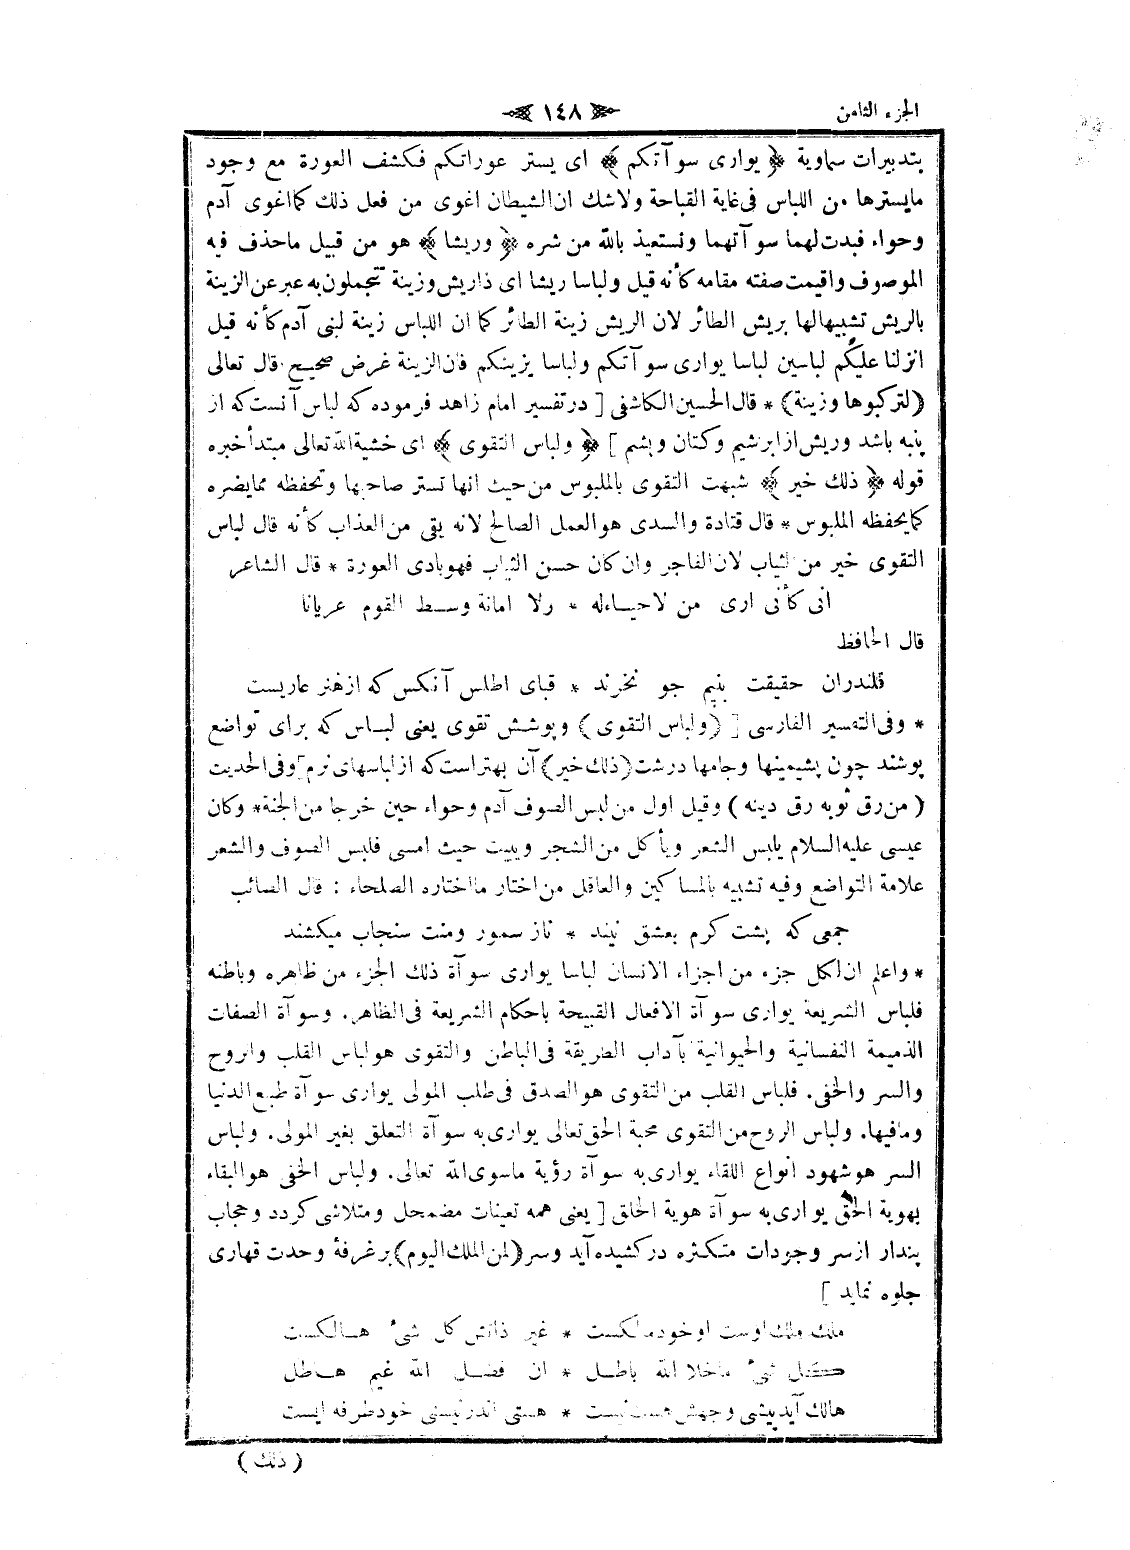 الجزء الثامن
١٤٨
بتدبيرات سماوية ﴿ يوارى سوآتكم ﴾ اى يستر عوراتكم فكشف العورة مع وجود
مايسترها من اللباس فى غاية القباحة ولاشك ان الشيطان اغوى من فعل ذلك كما اغوى آدم
وحواء فبدت لهما سوآتهما ونستعيذ بالله من شره ﴿ وريشا ﴾ هو من قبيل ماحذف فيه
الموصوف واقيمت صفته مقامه كأنه قيل ولباسا ريشا اى ذا ريش وزينة تتجملون به عبر عن الزينة
بالريش تشبيها لها بريش الطائر لان الريش زينة الطائر كما ان اللباس زينة لبنى آدم كأنه قيل
انزلنا عليكم لباسين لباسا يوارى سوآتكم ولباسا يزينكم فان الزينة غرض صحيح قال تعالى
(لتركبوها وزينة) * قال الحسين الكاشفى [ در تفسير امام زاهد فرموده كه لباس آنست كه از
پنبه باشد وريش از ابرشيم وكتان وپشم ] ﴿ ولباس التقوى ﴾ اى خشية الله تعالى مبتدأ خبره
قوله ﴿ ذلك خير ﴾ شبهت التقوى بالملبوس من حيث انها تستر صاحبها وتحفظه مما يضره
كما يحفظه الملبوس * قال قتادة والسدى هو العمل الصالح لانه يقى من العذاب كأنه قال لباس
التقوى خير من الثياب لان الفاجر وان كان حسن الثياب فهو بادى العورة * قال الشاعر
انى كأنى ارى من لاحياء له * ولا امانة وسط القوم عريانا
قال الحافظ
قلندران حقيقت بنيم جو نخرند * قباى اطلس آنكس كه از هنر عاريست
* وفى التفسير الفارسى [ (ولباس التقوى) وپوشش تقوى يعنى لباس كه براى تواضع
پوشند چون پشمينها وجامها درشت (ذلك خير) آن بهتراست كه از لباسهاى نرم ] وفى الحديث
( من رق ثوبه رق دينه ) وقيل اول من لبس الصوف آدم وحواء حين خرجا من الجنة * وكان
عيسى عليه السلام يلبس الشعر ويأكل من الشجر ويبيت حيث امسى فلبس الصوف والشعر
علامة التواضع وفيه تشبيه بالمساكين والعاقل من اختار ما اختاره الصلحاء : قال الصائب
جمعى كه پشت كرم بعشق نيند * ناز سمور ومنت سنجاب ميكشند
* واعلم ان لكل جزء من اجزاء الانسان لباسا يوارى سوآة ذلك الجزء من ظاهره وباطنه
فلباس الشريعة يوارى سوآة الافعال القبيحة باحكام الشريعة فى الظاهر. وسوآة الصفات
الذميمة النفسانية والحيوانية بآداب الطريقة فى الباطن والتقوى هو لباس القلب والروح
والسر والخفى. فلباس القلب من التقوى هو الصدق فى طلب المولى يوارى سوآة طبع الدنيا
ومافيها. ولباس الروح من التقوى محبة الحق تعالى يوارى به سوآة التعلق بغير المولى. ولباس
السر هو شهود انواع اللقاء يوارى به سوآة رؤية ماسوى الله تعالى. ولباس الخفى هو البقاء
بهوية الحق يوارى به سوآة هوية الخلق [ يعنى همه تعينات مضمحل ومتلاشى كردد وحجاب
پندار از سر وجودات متكثره در كشيده آيد وسر (لمن الملك اليوم) بر غرفهٔ وحدت قهارى
جلوه نمايد ]
ملك ملك اوست او خود مالكست * غير ذاتش كل شىء هالكست
كل شىء ماخلا الله باطل * ان فضل الله غيم هاطل
هالك آيد پيش وجهش هست نيست * هستى اندر نيستى خود طرفه ايست
( ذلك )